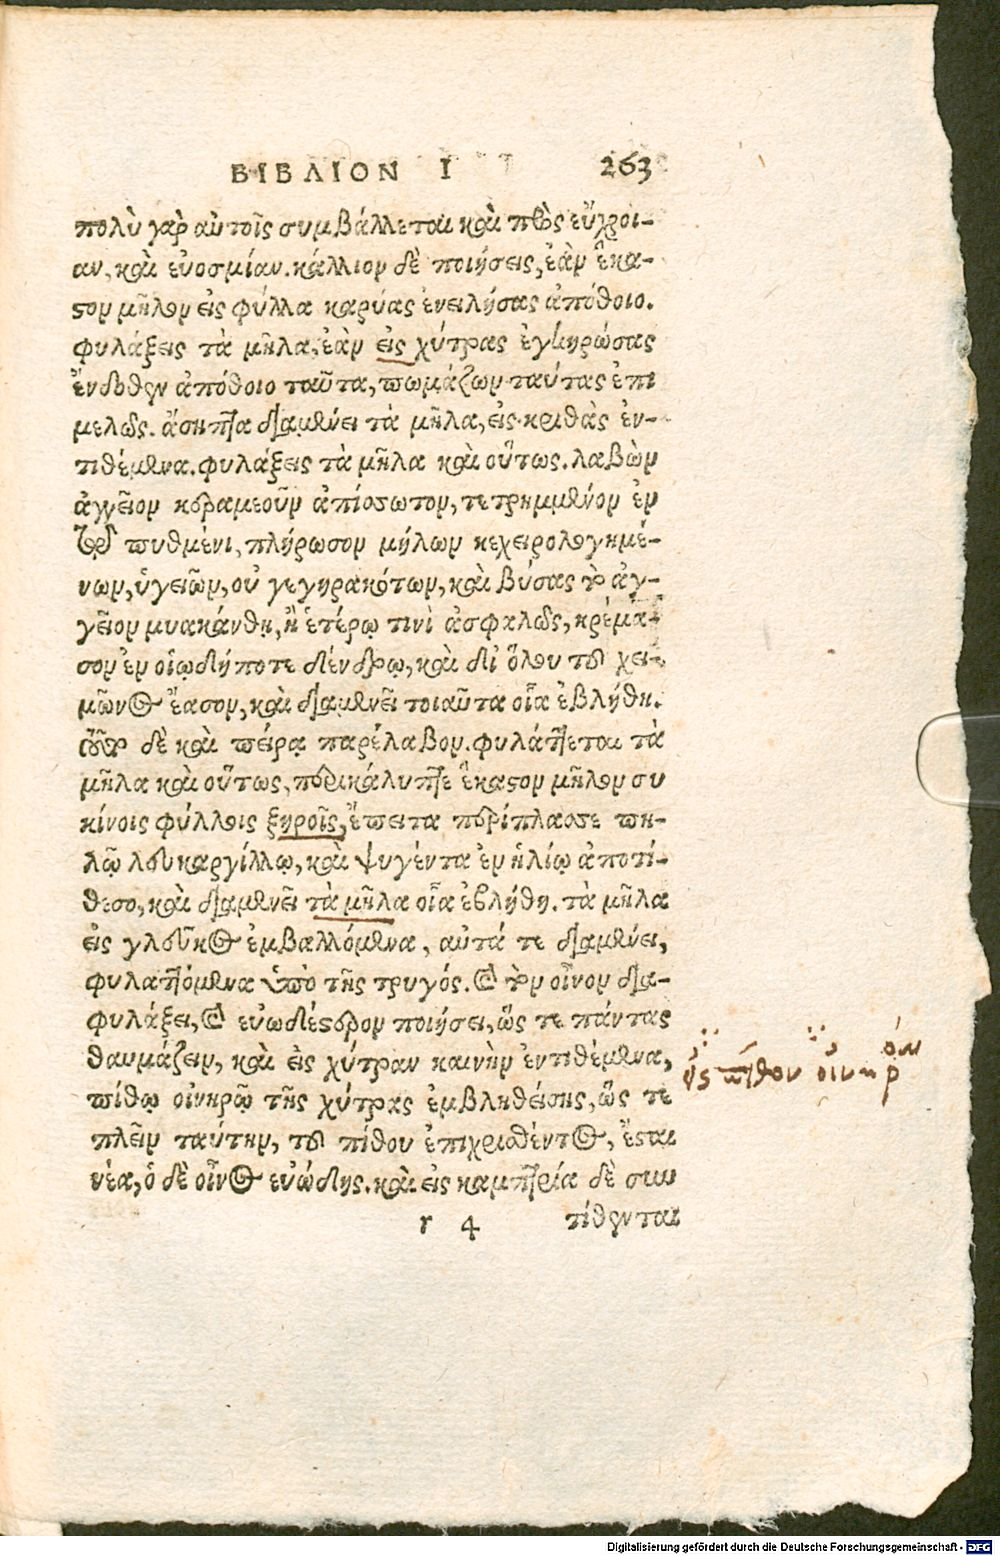 ΒΙΒΛΙΟΝ Ι 263
πολὺ γὰρ αὐτοῖς συμβάλλεται καὶ πρὸς εὔχροι-
αν, καὶ εὐοσμίαν. κάλλιον δὲ ποιήσεις, ἐὰν ἕκα-
στον μῆλον εἰς φύλλα καρύας ἐνειλήσας ἀπόθοιο.
φυλάξεις τὰ μῆλα, ἐὰν εἰς χύτρας ἐγκηρώσας
ἔνδοθεν ἀπόθοιο ταῦτα, πωμάζων ταύτας ἐπι
μελῶς. ἄσηπτα διαμένει τὰ μῆλα, εἰς κριθὰς ἐν-
τιθέμενα. φυλάξεις τὰ μῆλα καὶ οὕτως. λαβὼν
ἀγγεῖον κεραμεοῦν ἀπίσσωτον, τετρημμένον ἐν
τῷ πυθμένι, πλήρωσον μήλων κεχειρολογημέ-
νων, ὑγειῶν, οὐ γεγηρακότων, καὶ βύσας τὸ ἀγ-
γεῖον μυακάνθῃ, ἢ ἑτέρῳ τινὶ ἀσφαλῶς, κρέμα-
σον ἐν οἱῳδήποτε δένδρῳ, καὶ δι' ὅλου τοῦ χει-
μῶνος ἔασον, καὶ διαμενεῖ τοιαῦτα οἷα ἐβλήθη.
ὅπερ δὲ καὶ πείρᾳ παρέλαβον. φυλάττεται τὰ
μῆλα καὶ οὕτως, περικάλυπτε ἕκαστον μῆλον συ
κίνοις φύλλοις ξηροῖς, ἔπειτα περίπλασσε πη-
λῷ λευκαργίλλῳ, καὶ ψυγέντα ἐν ἡλίῳ ἀποτί-
θεσο, καὶ διαμενεῖ τὰ μῆλα οἷα ἐβλήθη. τὰ μῆλα
εἰς γλεῦκος ἐμβαλλόμενα, αὐτά τε διαμένει,
φυλαττόμενα ὑπὸ τῆς τρυγός. καὶ τὸν οἶνον δια-
φυλάξει, καὶ εὐωδέστερον ποιήσει, ὥς τε πάντας
θαυμάζειν, καὶ εἰς χύτραν καινὴν ἐντιθέμενα,
πίθῳ οἰνηρῷ τῆς χύτρας ἐμβληθείσης, ὥς τε
πλεῖν ταύτην, τοῦ πίθου ἐπιχρισθέντος, ἔσται
νέα, ὁ δὲ οἶνος εὐώδης. καὶ εἰς καμπτρία δὲ συν
r 4 τίθενται
εἰς πίθον οἰνηρόν
Digitalisierung gefördert durch die Deutsche Forschungsgemeinschaft - DFG